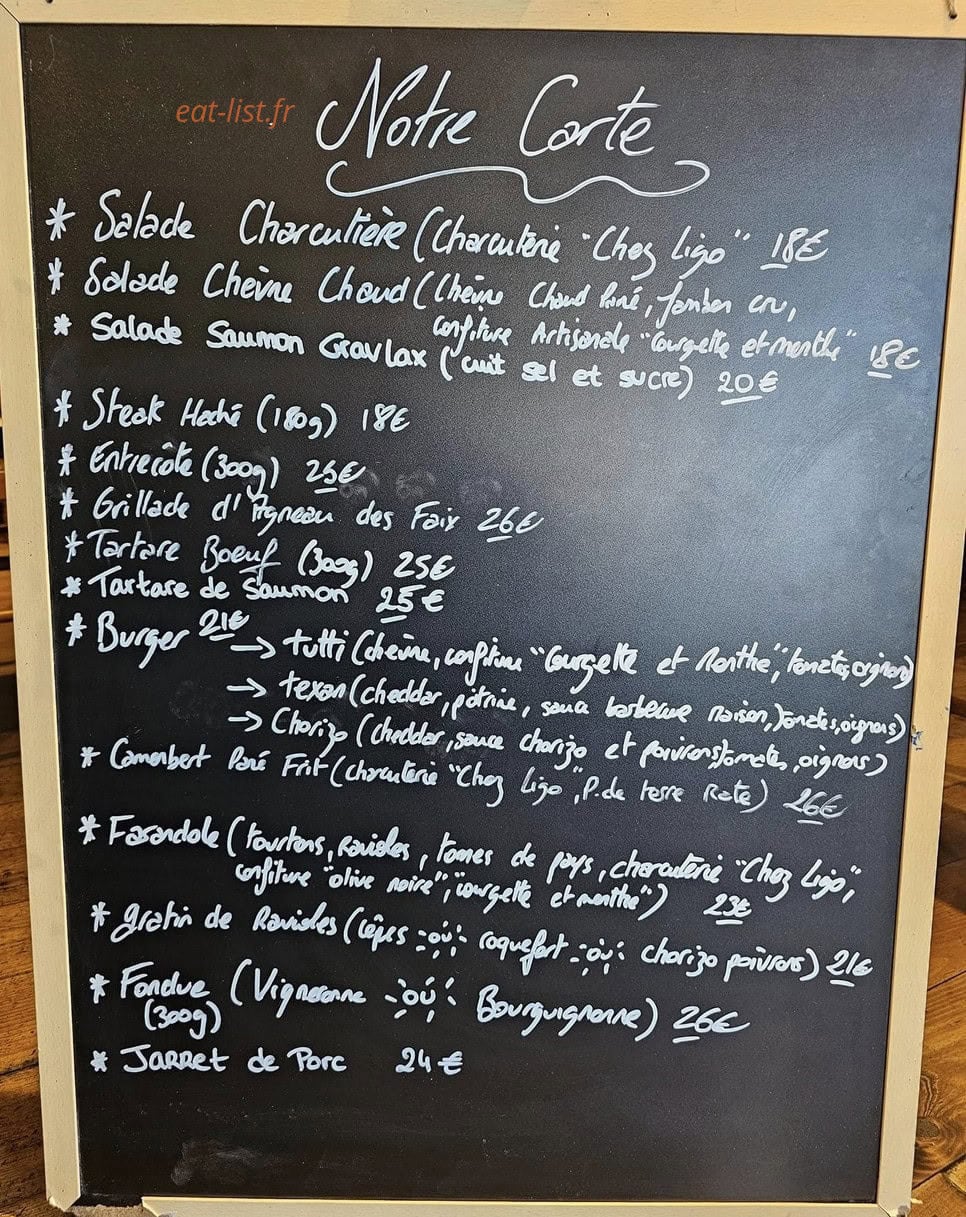 eat-list.fr
Notre Carte
* Salade Charcutière (Charcuterie "Chez Ligo" 18€
* Salade Chèvre Chaud (Chèvre Chaud Pané, Jambon cru,
Confiture Artisanale "Courgette et menthe" 18€
* Salade Saumon Gravlax (cuit sel et sucre) 20€
* Steak Haché (180g) 18€
* Entrecôte (300g) 25€
* Grillade d'Agneau des Faix 26€
* Tartare Boeuf (300g) 25€
* Tartare de Saumon 25€
* Burger 21€ → tutti (chèvre, confiture "Courgette et Menthe", tomates, oignons)
→ texan (cheddar, poitrine, sauce barbecue maison, tomates, oignons)
→ Chorizo (cheddar, sauce chorizo et poivrons, tomates, oignons)
* Camembert Pané Frit (charcuterie "Chez Ligo", P. de terre Rate) 26€
* Farandole (tourtons, ravioles, tomes de pays, charcuterie "Chez Ligo",
confiture "olive noire", "courgette et menthe") 23€
* gratin de Ravioles (Cèpes -où- roquefort -où- chorizo poivrons) 21€
* Fondue (Vigneronne -où- Bourguignonne) 26€
(300g)
* Jarret de Porc 24€